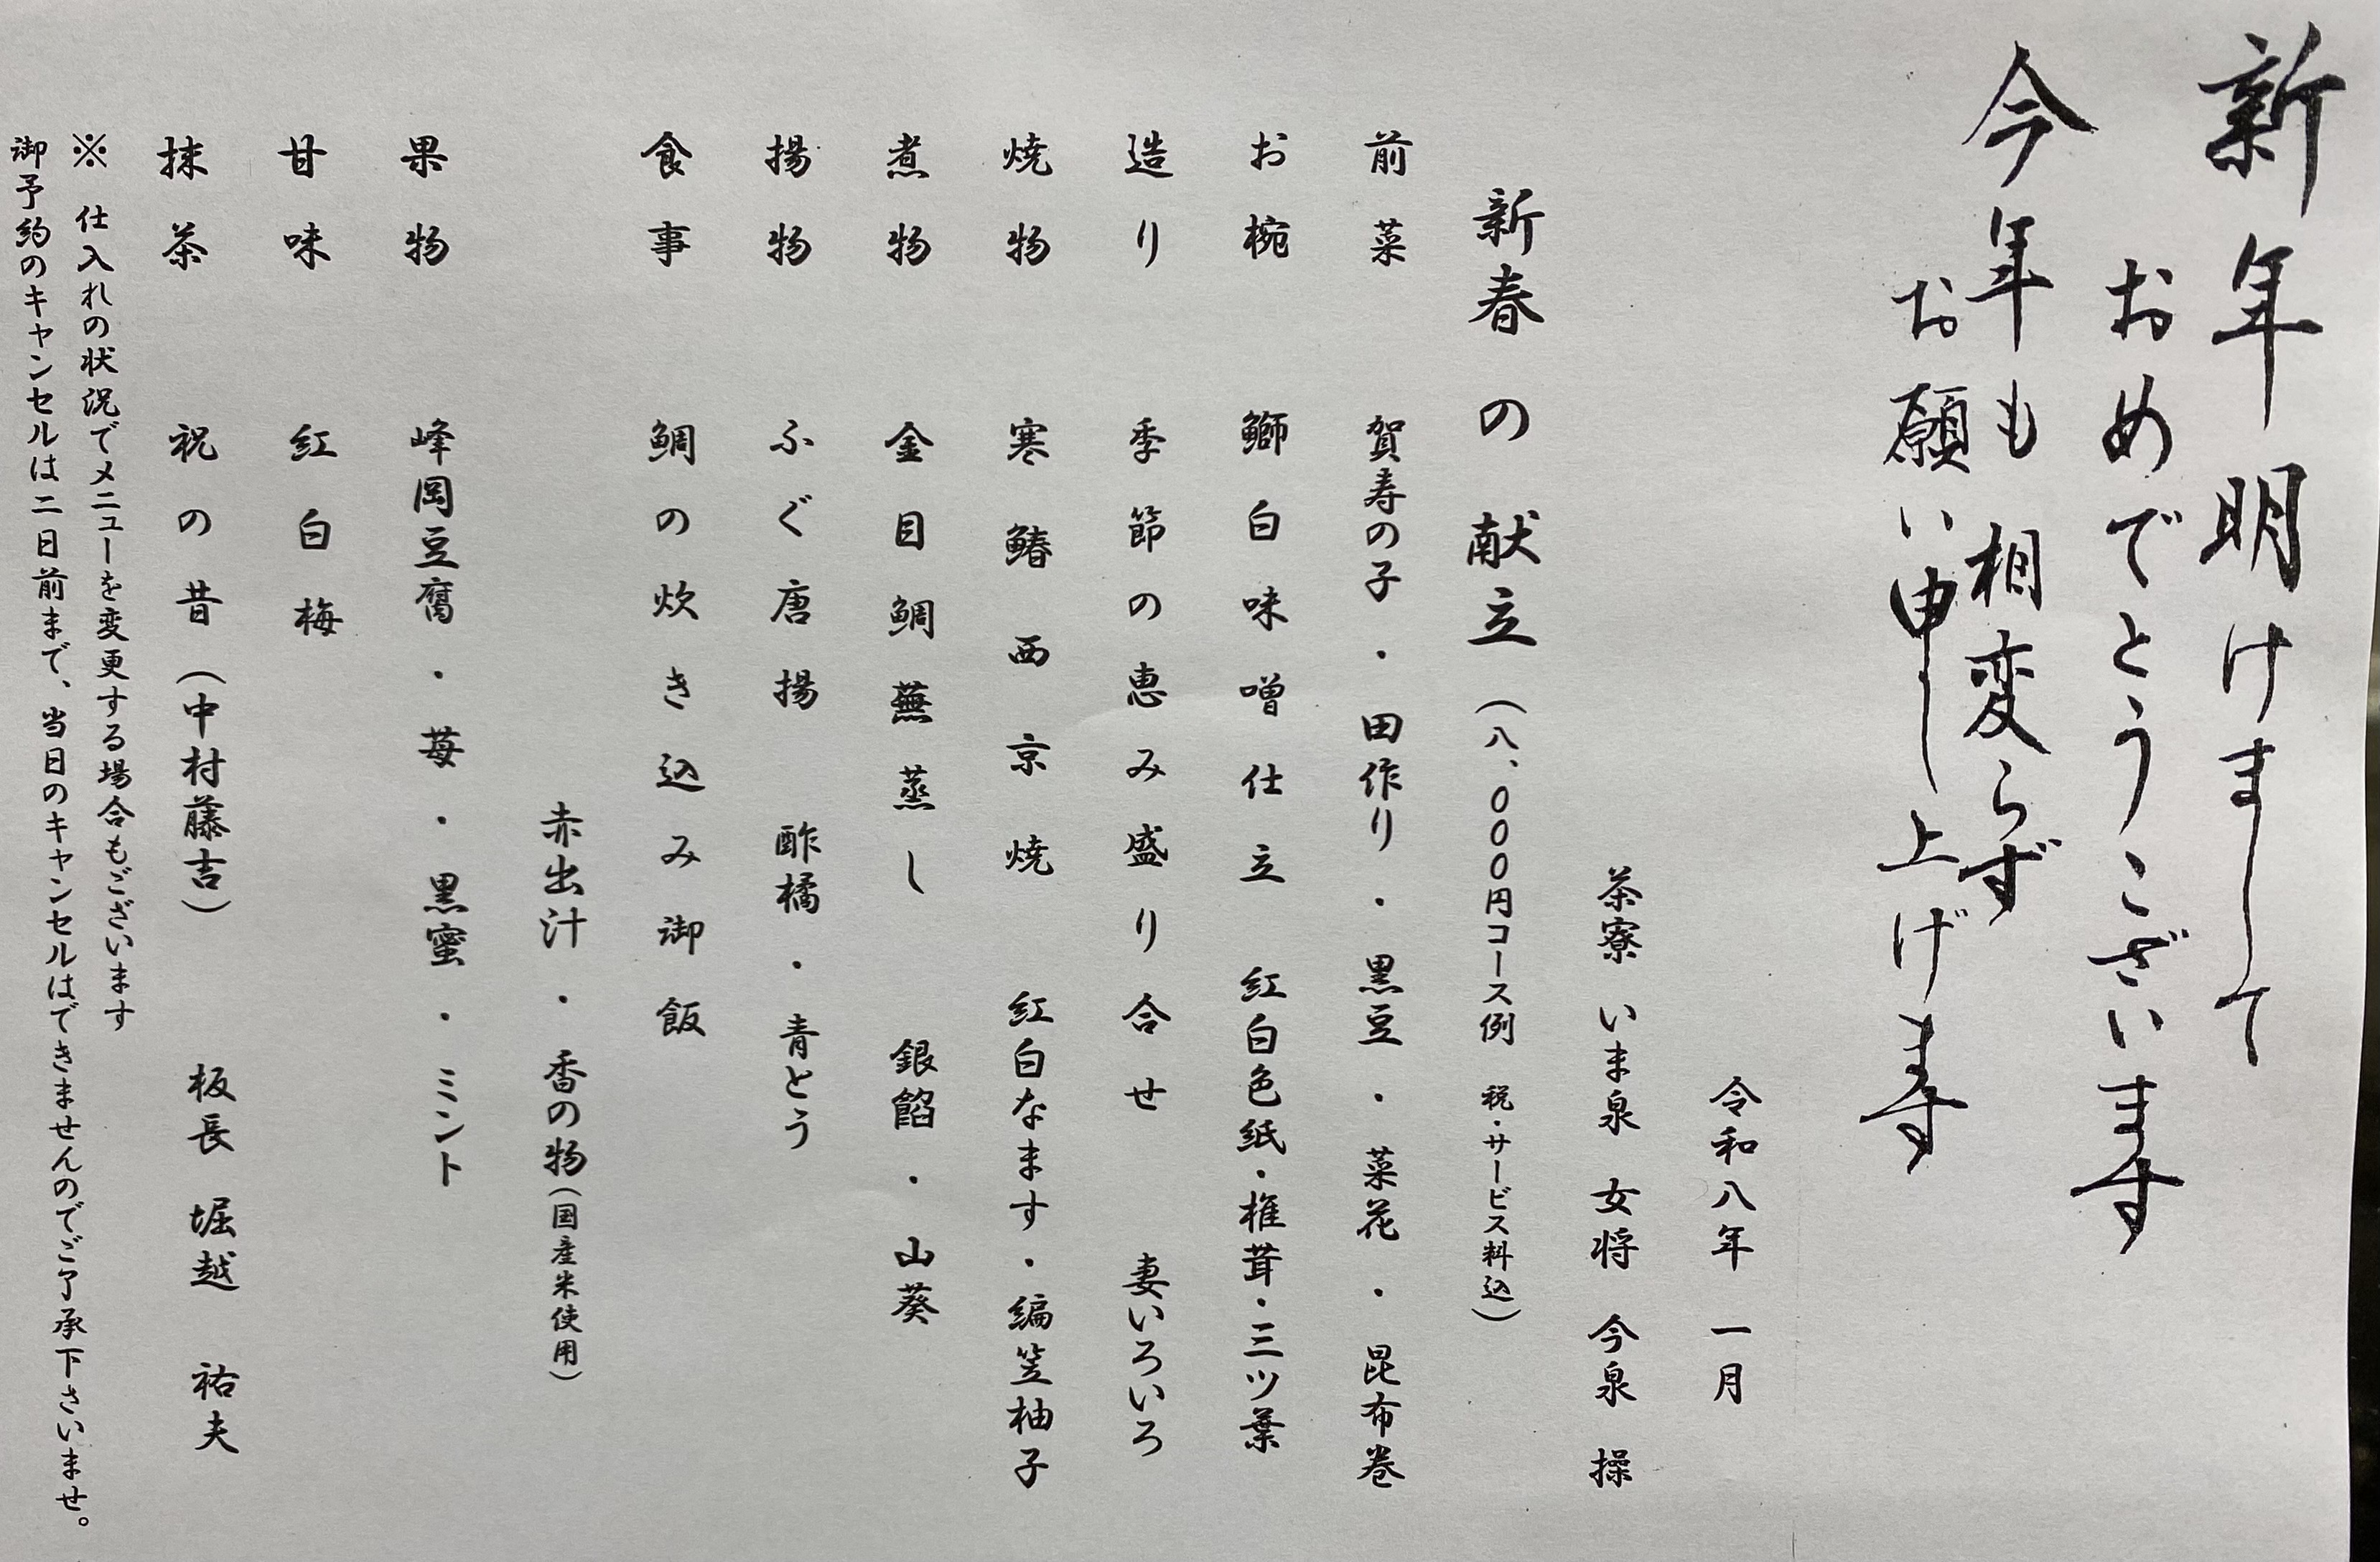 新年明けまして
おめでとうございます
今年も相変らず
お願い申し上げます
令和八年 一月
茶寮 いま泉 女将 今泉 操
新春の献立(八、〇〇〇円コース例 税・サービス料込)
前菜 賀寿の子・田作り・黒豆・菜花・昆布巻
お椀 鰤白味噌仕立 紅白色紙・椎茸・三ツ葉
造り 季節の恵み盛り合せ 妻いろいろ
焼物 寒鰆西京焼 紅白なます・編笠柚子
煮物 金目鯛蕪蒸し 銀餡・山葵
揚物 ふぐ唐揚 酢橘・青とう
食事 鯛の炊き込み御飯
赤出汁・香の物(国産米使用)
果物 峰岡豆腐・苺・黒蜜・ミント
甘味 紅白梅
抹茶 祝の昔(中村藤吉) 板長 堀越 祐夫
※ 仕入れの状況でメニューを変更する場合もございます
御予約のキャンセルは二日前まで、当日のキャンセルはできませんのでご了承下さいませ。